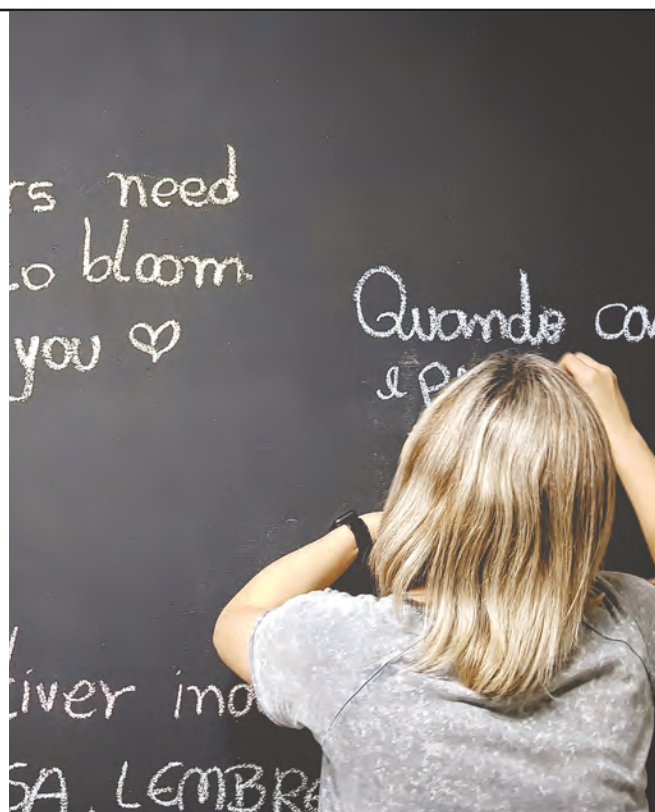 rs need
to bloom
you ♡
Quando ca
e p
iver ino
SA. LEMBRE